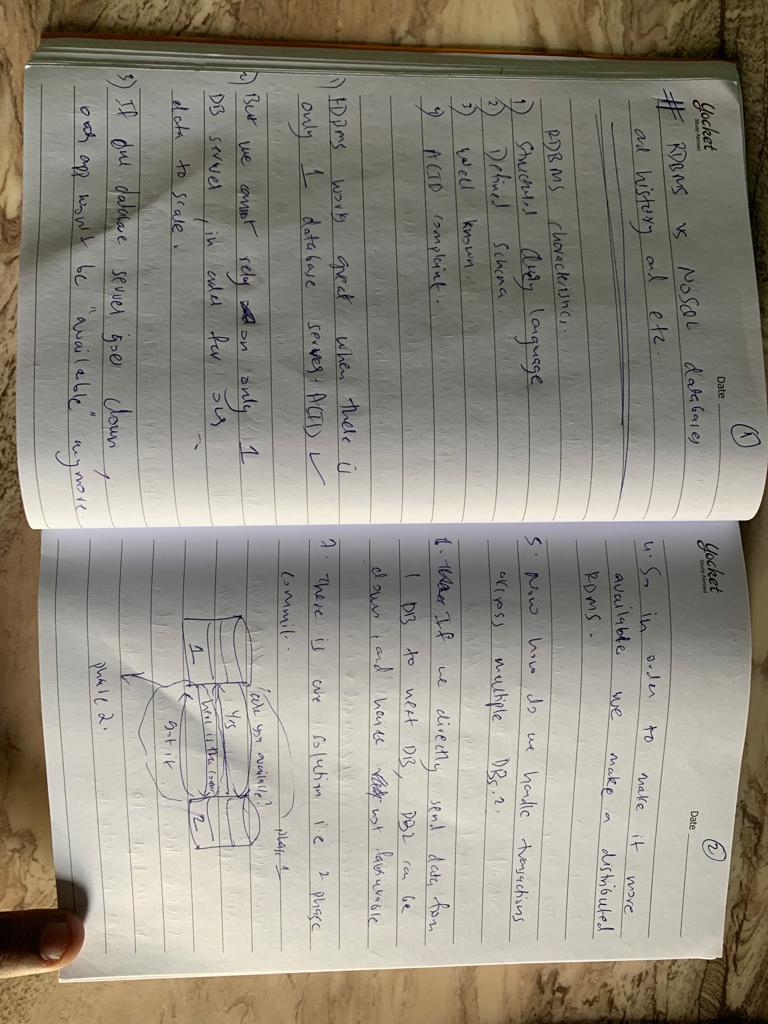 1
yocket
Study Abroad
Date
# RDBMS vs NoSQL databases
and history and etc.
RDBMS characteristics.
1) Structured Query language
2) Defined schema.
3) Well known.
4) ACID complaint.
1) RDBMS works great when there is
only 1 database server. ACID ✓
2) But we cannot rely on only 1
DB server, in order for our
data to scale.
3) If one database server goes down,
our app won't be "available" anymore.
2
yocket
Study Abroad
Date
4. So in order to make it more
available we make a distributed
RDMS.
5. Now how do we handle transactions
across multiple DBs.?
6. If we directly send data from
1 DB to next DB, DB2 can be
down, and hence not favourable
7. There is one solution i.e 2 phase
commit.
phase 1
are you available?
Yes
here is the
1
2
got it
phase 2.